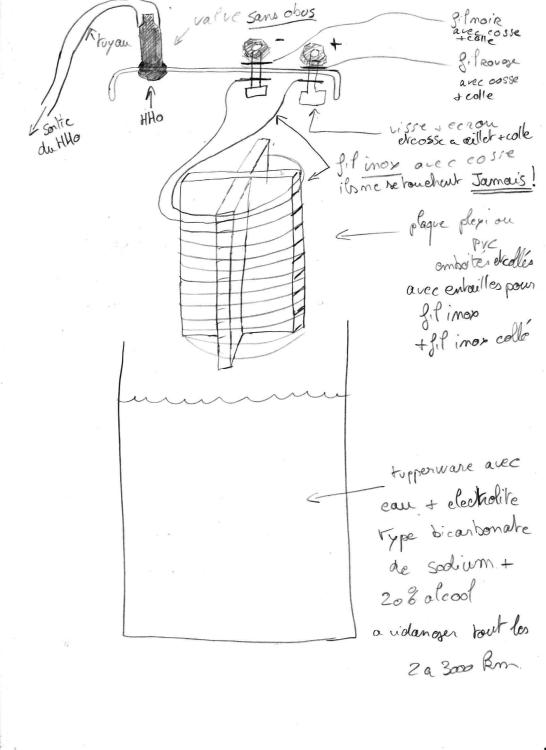 valve sans obus
tuyau
fil noir
avec cosse
+ colle
-
+
fil rouge
avec cosse
+ colle
sortie
du HHo
HHo
visse + ecrou
et cosse a œillet + colle
fil inox avec cosse
ils ne se touchent Jamais !
plaque plexi ou
PVC
emboités et collés
avec entailles pour
fil inox
+ fil inox collé
tupperware avec
eau + electrolite
type bicarbonate
de sodium +
20% alcool
a vidanger tout les
2 a 3000 km